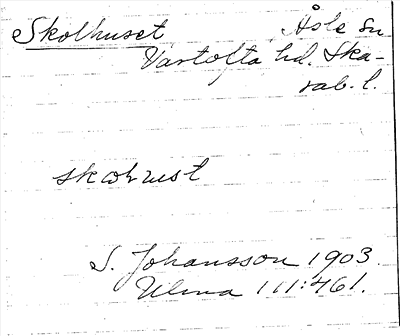 Skolhuset Åsle sn
Vartofta hd. Ska-
rab. l.
S. Johansson 1903.
Ulma 111:461.